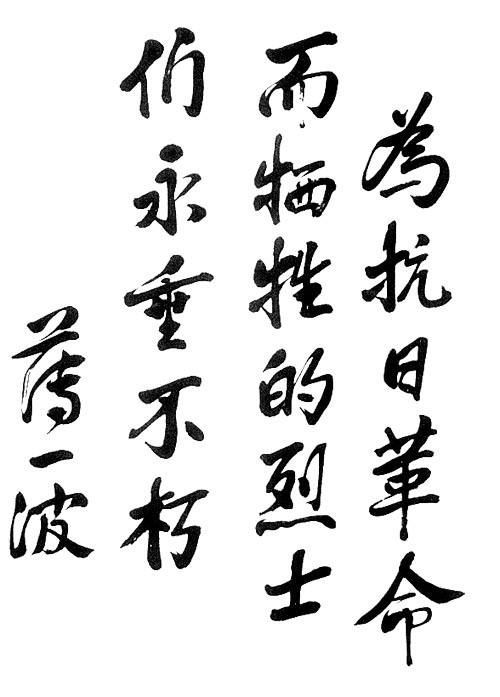 為抗日革命
而牺牲的烈士
们永垂不朽
薄一波